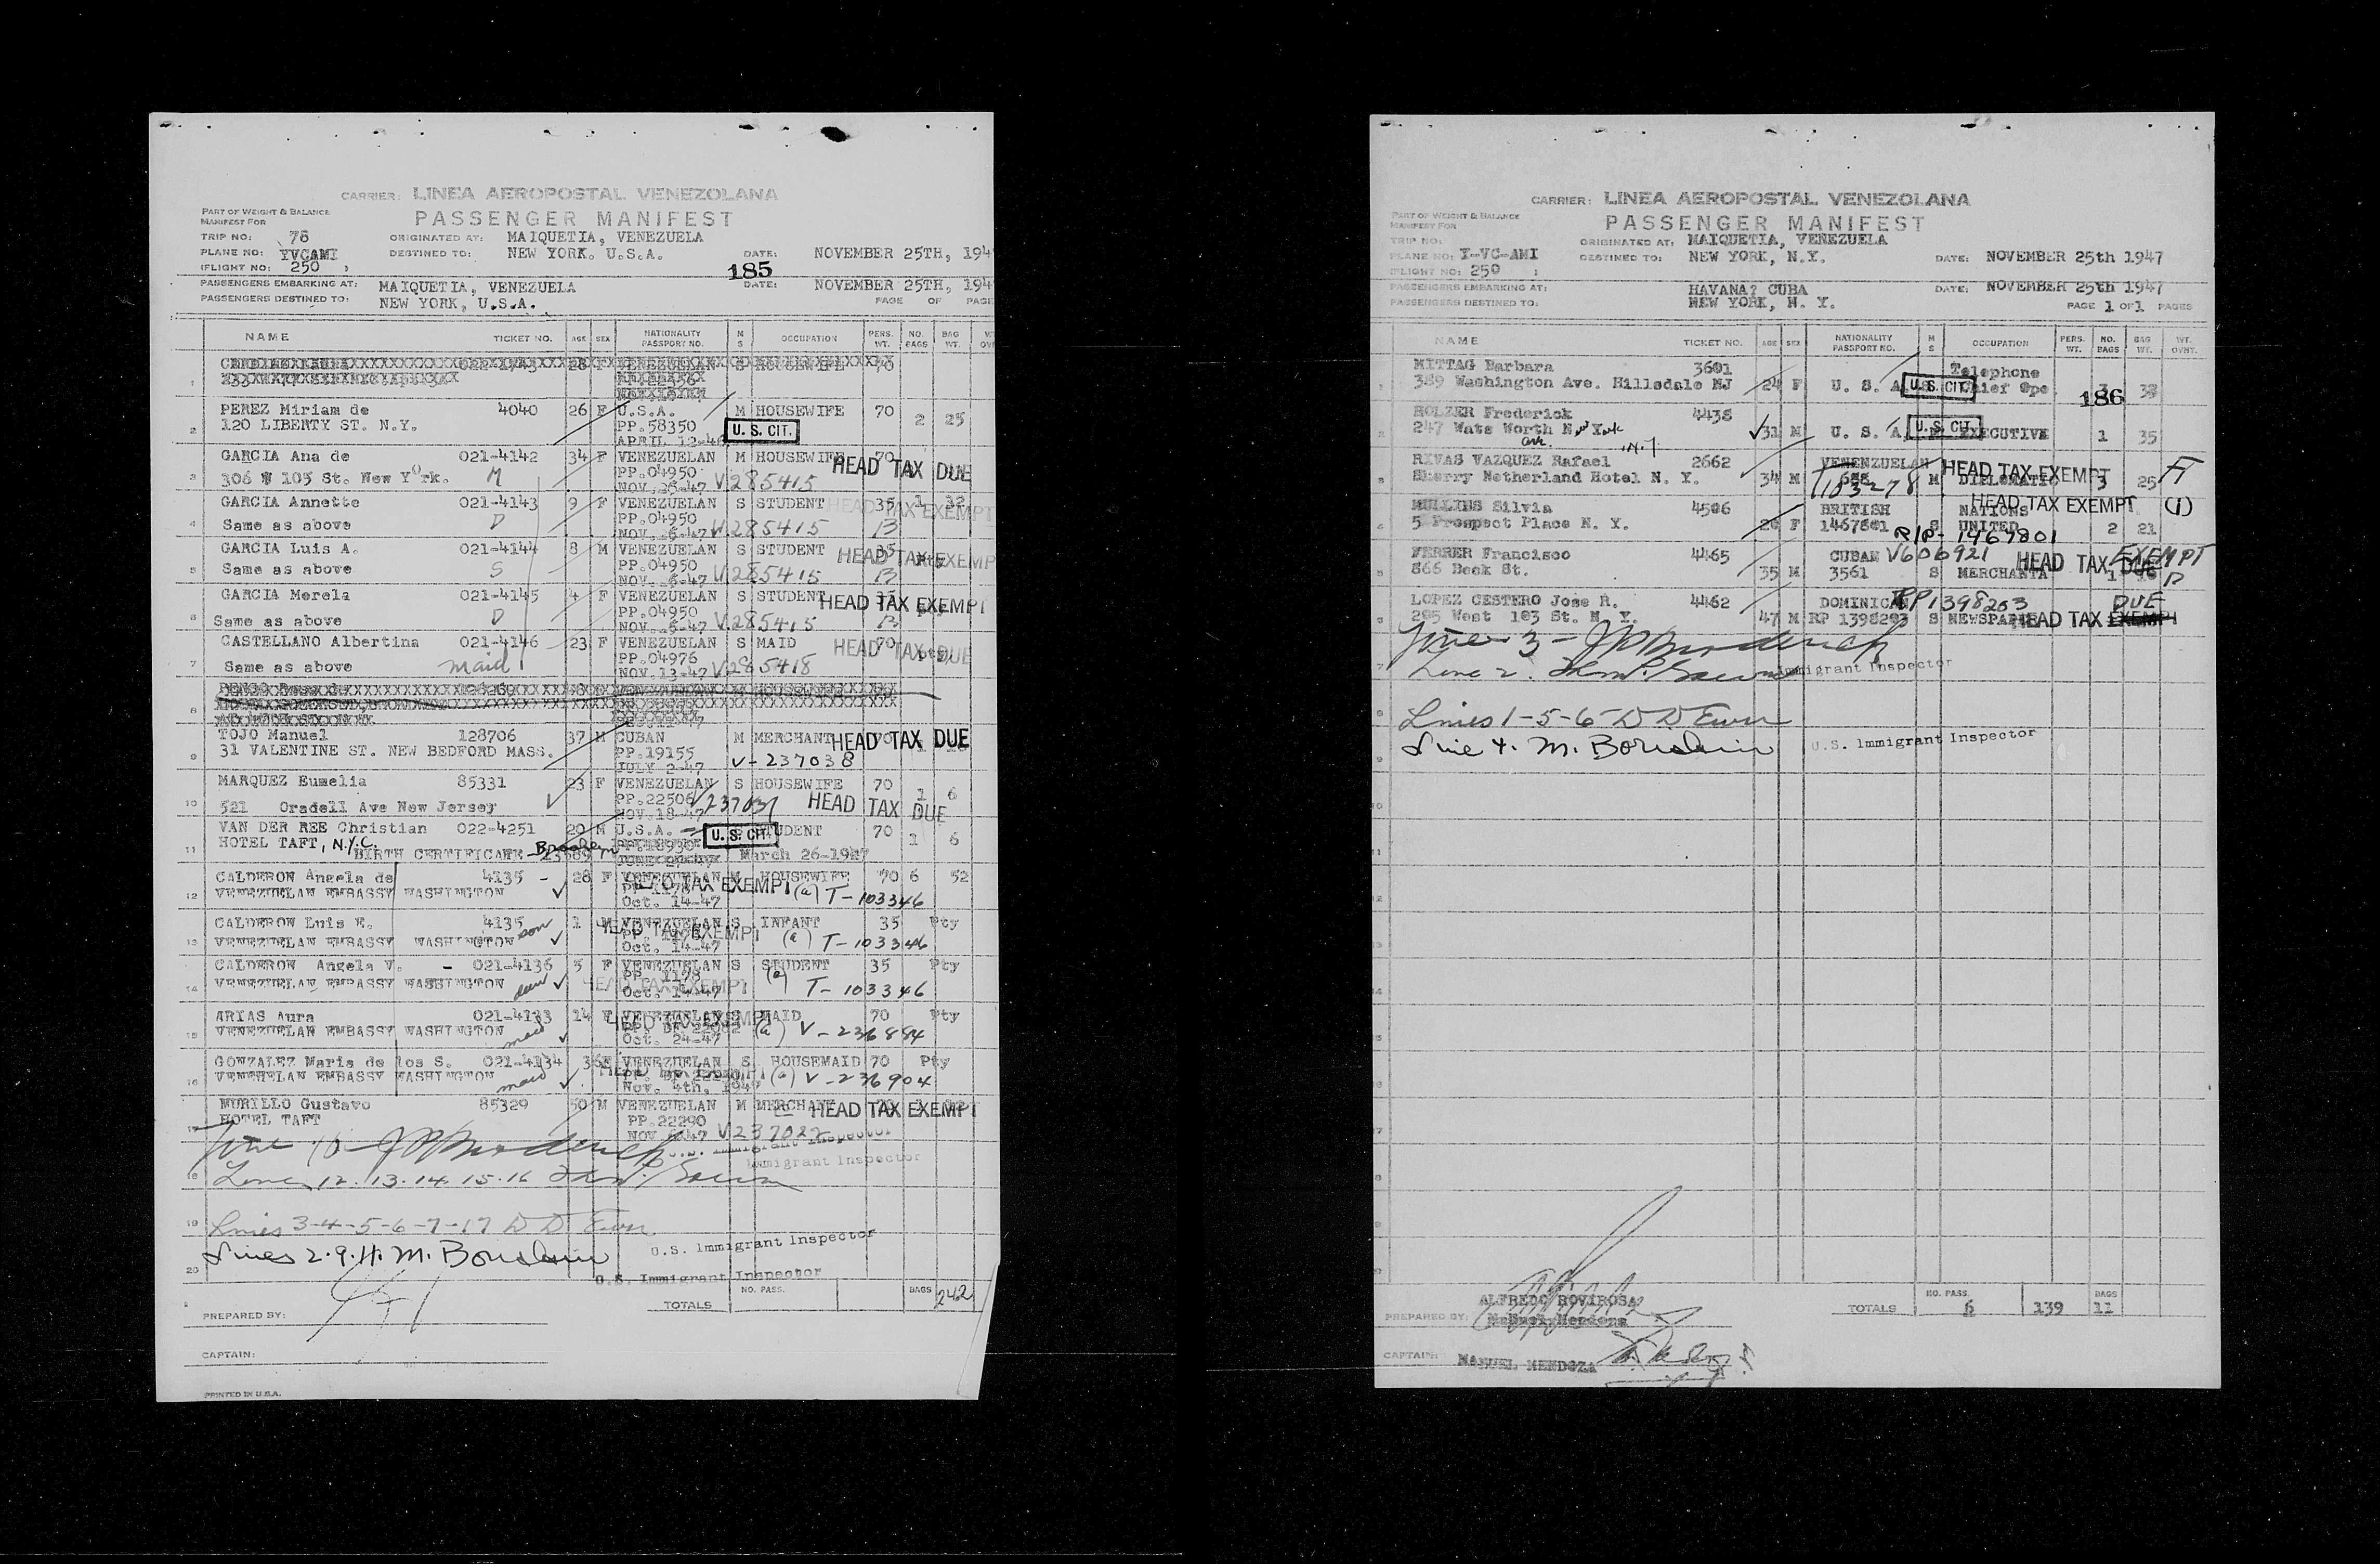 CARRIER: LINEA AEROPOSTAL VENEZOLANA
PART OF WEIGHT & BALANCE
MANIFEST FOR
PASSENGER MANIFEST
TRIP NO: 78 ORIGINATED AT: MAIQUETIA, VENEZUELA
PLANE NO: YVCAMI DESTINED TO: NEW YORK. U.S.A. DATE: NOVEMBER 25TH, 194
(FLIGHT NO: 250 )
185
PASSENGERS EMBARKING AT: MAIQUETIA, VENEZUELA DATE: NOVEMBER 25TH, 194
PASSENGERS DESTINED TO: NEW YORK, U.S.A. PAGE OF PAGE
NAME TICKET NO. AGE SEX NATIONALITY PASSPORT NO. M S OCCUPATION PERS. WT. NO. BAGS BAG WT.
1
PEREZ Miriam de 4040 26 F U.S.A. M HOUSEWIFE 70
2 120 LIBERTY ST. N.Y. PP.58350 U. S. CIT. 2 25
APRIL 12-46
GARCIA Ana de 021-4142 34 F VENEZUELAN M HOUSEWIFE 70 HEAD TAX DUE
3 306 W 105 St. New York. M PP.04950
NOV. 26-47 V285415
GARCIA Annette 021-4143 9 F VENEZUELAN S STUDENT 35 1 32 HEAD TAX EXEMPT
4 Same as above D PP.04950
NOV. 6-47 V285415 B
GARCIA Luis A. 021-4144 8 M VENEZUELAN S STUDENT 35 HEAD TAX EXEMP
5 Same as above S PP.04950
NOV. 6-47 V285415 B
GARCIA Merela 021-4145 4 F VENEZUELAN S STUDENT HEAD TAX EXEMPT
6 Same as above D PP.04950
NOV. 6-47 V285415 B
CASTELLANO Albertina 021-4146 23 F VENEZUELAN S MAID 70 HEAD TAX DUE
7 Same as above maid PP.04976
NOV. 13-47 V285418
8
TOJO Manuel 128706 37 M CUBAN M MERCHANT 70 HEAD TAX DUE
9 31 VALENTINE ST. NEW BEDFORD MASS. PP.19155
JULY 2-47 V-237038
MARQUEZ Eumelia 85331 23 F VENEZUELAN S HOUSEWIFE 70
10 521 Oradell Ave New Jersey PP.22506 1 6 HEAD TAX DUE
NOV. 18-47
VAN DER REE Christian 022-4251 20 M U.S.A. U. S. CIT. STUDENT 70
11 HOTEL TAFT, N.Y.C. 1 6
BIRTH CERTIFICATE Brooklyn March 26-1927
CALDERON Angela de 4135 - 28 F VENEZUELAN M HOUSEWIFE 70 6 52
12 VENEZUELAN EMBASSY WASHINGTON TAX EXEMPT (a) T-103346
Oct. 14-47
CALDERON Luis E. 4135 1 M VENEZUELAN S INFANT 35 Pty
13 VENEZUELAN EMBASSY WASHINGTON son HEAD TAX EXEMPT (a) T-103346
Oct. 14-47
CALDERON Angela V. - 021-4136 5 F VENEZUELAN S STUDENT 35 Pty
14 VENEZUELAN EMBASSY WASHINGTON PP. 1178 HEAD TAX EXEMPT (a) T-103346
Oct. 14-47
ARIAS Aura 021-4133 14 F VENEZUELAN S MAID 70 Pty
15 VENEZUELAN EMBASSY WASHINGTON maid HEAD TAX EXEMPT (a) V-236884
Oct. 24-47
GONZALEZ Maria de los S. 021-4134 36 F VENEZUELAN S HOUSEMAID 70 Pty
16 VENEZUELAN EMBASSY WASHINGTON maid HEAD TAX EXEMPT (a) V-236904
Nov. 4th, 1947
MURILLO Gustavo 85329 50 M VENEZUELAN M MERCHANT HEAD TAX EXEMPT
17 HOTEL TAFT PP.22290
U.S. Immigrant Inspector
Immigrant Inspector
18 Lines 12.13.14.15.16
19 Lines 3-4-5-6-7-17
Lines 2.9.11. M.
20 U.S. Immigrant Inspector
U.S. Immigrant Inspector
NO. PASS. BAGS
TOTALS 242
PREPARED BY:
CAPTAIN:
PRINTED IN U.S.A.
CARRIER: LINEA AEROPOSTAL VENEZOLANA
PART OF WEIGHT & BALANCE
MANIFEST FOR
PASSENGER MANIFEST
TRIP NO: ORIGINATED AT: MAIQUETIA, VENEZUELA
PLANE NO: Y-VC-AMI DESTINED TO: NEW YORK, N.Y. DATE: NOVEMBER 25th 1947
(FLIGHT NO: 250 )
PASSENGERS EMBARKING AT: HAVANA? CUBA DATE: NOVEMBER 25th 1947
PASSENGERS DESTINED TO: NEW YORK, N. Y. PAGE 1 OF 1 PAGES
NAME TICKET NO. AGE SEX NATIONALITY PASSPORT NO. M S OCCUPATION PERS. WT. NO. BAGS BAG WT. WT. OVHT.
MITTAG Barbara 3601 Telephone
389 Washington Ave. Hillsdale NJ 24 F U. S. A. U. S. CIT. Chief Ope. 3
186
HOLZER Frederick 4438
247 Wats Worth New York 31 M U. S. A. U. S. CIT. EXECUTIVE 1 35
Ave. N.Y
RIVAS VAZQUEZ Rafael 2662 VENENZUELAN HEAD TAX EXEMPT
Sherry Netherland Hotel N. Y. 34 M T103278 M DIPLOMATIC 3 25
MULLINS Silvia 4506 BRITISH NATIONS HEAD TAX EXEMPT (1)
5 Prospect Place N. Y. F S UNITED 2 21
R/P- 1467801
FERRER Francisco 4465 CUBAN V606921 HEAD TAX DUE EXEMPT
866 Beck St. 35 M 3561 S MERCHANTA 1
LOPEZ CESTERO Jose R. 4462 DOMINICAN RP1398203 DUE
205 West 103 St. N. Y. 47 M RP 1398203 S HEAD TAX EXEMPT
Line 3 -
Line 2. Immigrant Inspector
Lines 1-5-6-
Line 4. M. U.S. Immigrant Inspector
NO. PASS. BAGS
TOTALS 6 139 11
PREPARED BY: ALFREDO ROVIROSA
CAPTAIN: MANUEL MENDOZA